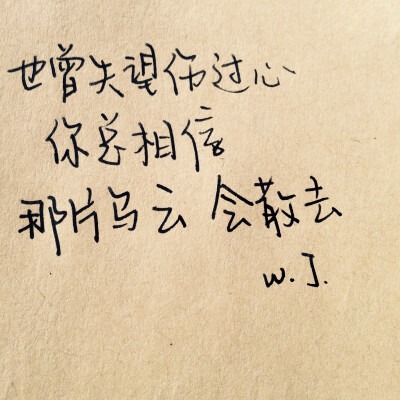 也曾失望伤过心
你总相信
那片乌云 会散去
W.J.